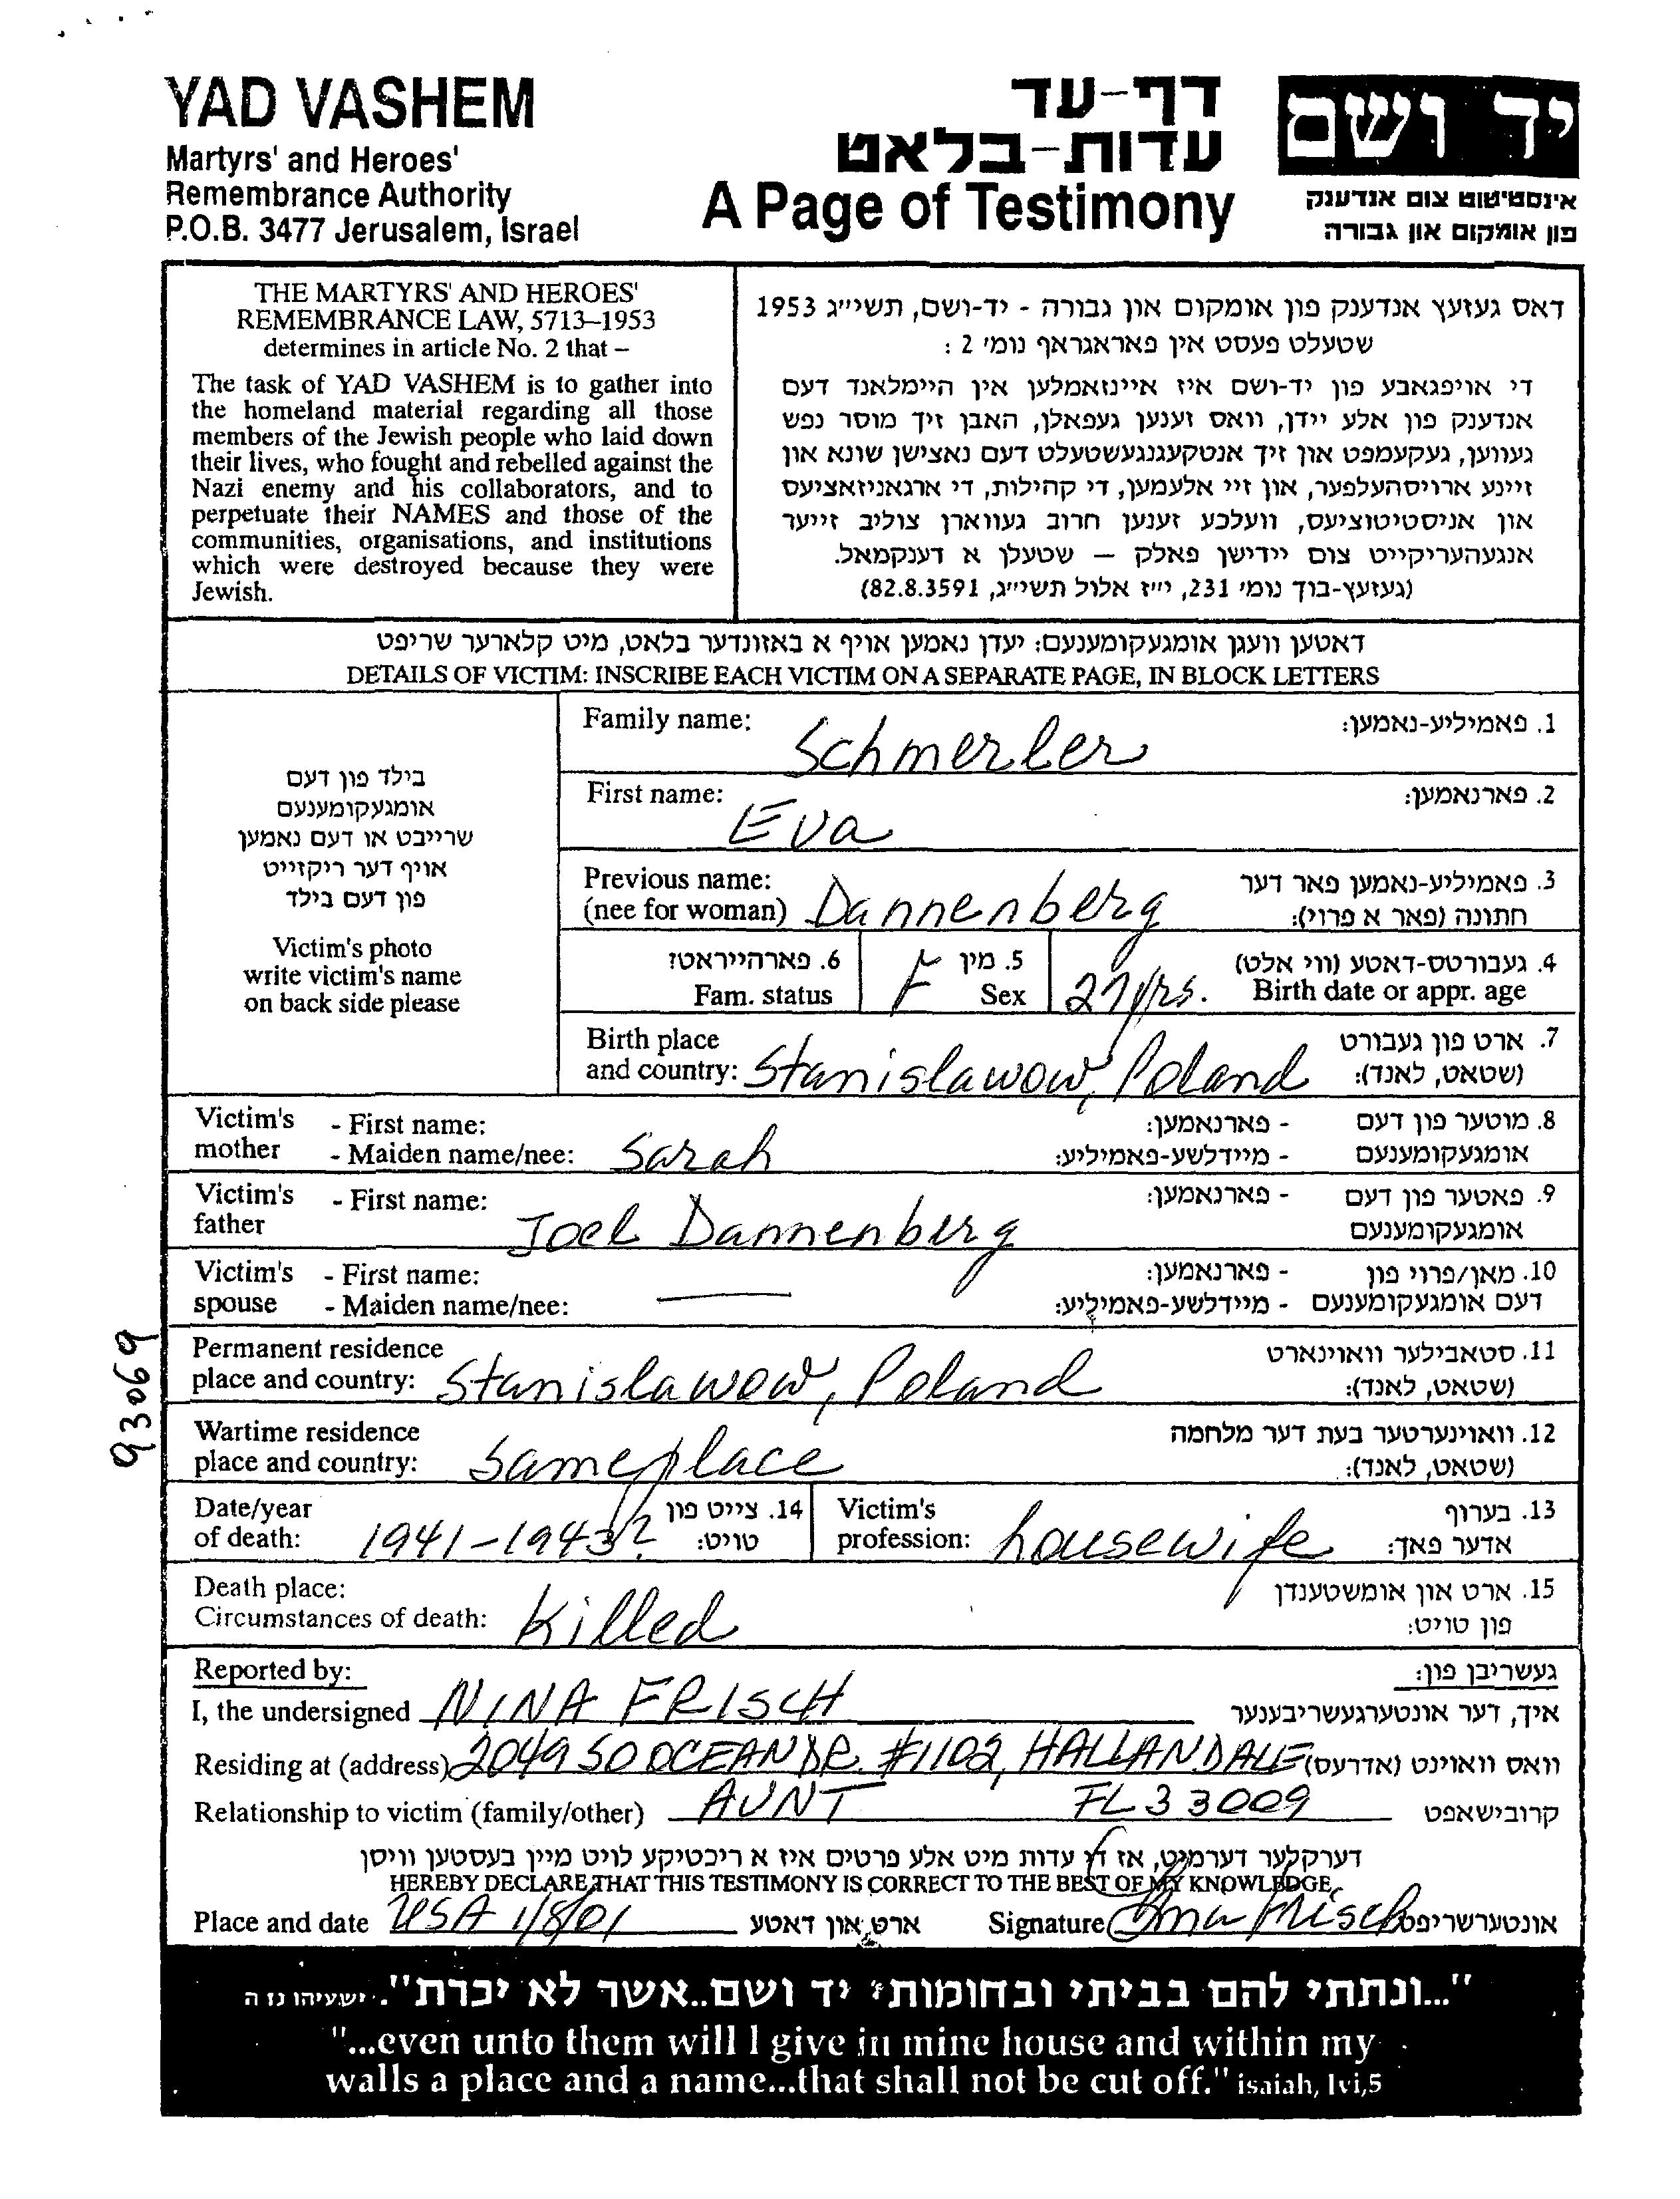 YAD VASHEM
Martyrs' and Heroes'
Remembrance Authority
P.O.B. 3477 Jerusalem, Israel
דף-עד
עדות-בלאט
A Page of Testimony
יד ושם
אינסטיטוט צום אנדענק
פון אומקום און גבורה
THE MARTYRS' AND HEROES'
REMEMBRANCE LAW, 5713–1953
determines in article No. 2 that –
The task of YAD VASHEM is to gather into
the homeland material regarding all those
members of the Jewish people who laid down
their lives, who fought and rebelled against the
Nazi enemy and his collaborators, and to
perpetuate their NAMES and those of the
communities, organisations, and institutions
which were destroyed because they were
Jewish.
דאס געזעץ אנדענק פון אומקום און גבורה - יד-ושם, תשי״ג 1953
שטעלט פעסט אין פאראגראף נומ׳ 2 :
די אויפגאבע פון יד-ושם איז איינזאמלען אין היימלאנד דעם
אנדענק פון אלע יידן, וואס זענען געפאלן, האבן זיך מוסר נפש
געווען, געקעמפט און זיך אנטקעגנגעשטעלט דעם נאצישן שונא און
זיינע ארויסהעלפער, און זיי אלעמען, די קהילות, די ארגאניזאציעס
און אניסטיטוציעס, וועלכע זענען חרוב געווארן צוליב זייער
אנגעהעריקייט צום יידישן פאלק – שטעלן א דענקמאל.
(געזעץ-בוך נומ׳ 231, י״ז אלול תשי״ג, 82.8.3591)
דאטען וועגן אומגעקומענעם: יעדן נאמען אויף א באזונדער בלאט, מיט קלארער שריפט
DETAILS OF VICTIM: INSCRIBE EACH VICTIM ON A SEPARATE PAGE, IN BLOCK LETTERS
בילד פון דעם
אומגעקומענעם
שרייבט או דעם נאמען
אויף דער ריקזייט
פון דעם בילד
Victim's photo
write victim's name
on back side please
Family name: Schmerler 1. פאמיליע-נאמען:
First name: Eva 2. פארנאמען:
Previous name: 3. פאמיליע-נאמען פאר דער
(nee for woman) Dannenberg חתונה (פאר א פרוי):
6. פארהייראט? F 5. מין 4. געבורטס-דאטע (ווי אלט)
Fam. status Sex 27 yrs. Birth date or appr. age
Birth place 7. ארט פון געבורט
and country: Stanislawow, Poland (שטאט, לאנד):
Victim's - First name: - פארנאמען: 8. מוטער פון דעם
mother - Maiden name/nee: Sarah - מיידלשע-פאמיליע: אומגעקומענעם
Victim's - First name: - פארנאמען: 9. פאטער פון דעם
father Joel Dannenberg אומגעקומענעם
Victim's - First name: - פארנאמען: 10. מאן/פרוי פון
spouse - Maiden name/nee: — - מיידלשע-פאמיליע: דעם אומגעקומענעם
Permanent residence 11. סטאבילער וואוינארט
place and country: Stanislawow, Poland (שטאט, לאנד):
Wartime residence 12. וואוינערטער בעת דער מלחמה
place and country: same place (שטאט, לאנד):
Date/year 14. צייט פון Victim's 13. בערוף
of death: 1941-1943? טויט: profession: housewife אדער פאך:
Death place: 15. ארט און אומשטענדן
Circumstances of death: Killed פון טויט:
Reported by: געשריבן פון:
I, the undersigned NINA FRISCH איך, דער אונטערגעשריבענער
Residing at (address) 2049 SO OCEAN DR. #1102, HALLANDALE וואס וואוינט (אדרעס)
Relationship to victim (family/other) AUNT FL 33009 קרובישאפט
דערקלער דערמיט, אז די עדות מיט אלע פרטים איז א ריכטיקע לויט מיין בעסטען וויסן
HEREBY DECLARE THAT THIS TESTIMONY IS CORRECT TO THE BEST OF MY KNOWLEDGE
Place and date USA 1/8/01 ארט און דאטע Signature Nina Frisch אונטערשריפט
93069
"...ונתתי להם בביתי ובחומותי יד ושם..אשר לא יכרת". ישעיהו נו ה
"...even unto them will I give in mine house and within my
walls a place and a name...that shall not be cut off." isaiah, lvi,5